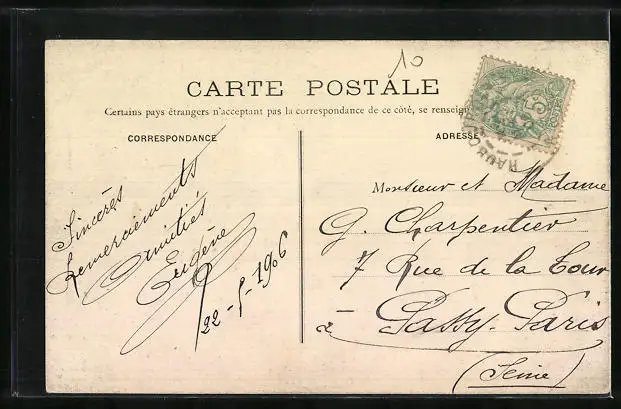 10
CARTE POSTALE
Certains pays étrangers n'acceptent pas la correspondance de ce côté, se renseign
CORRESPONDANCE
Sincères
Remerciements
Amitiés
Eugène
22-5-1906
ADRESSE
5
Monsieur et Madame
G. Charpentier
7 Rue de la Tour
à Passy-Paris
(Seine)